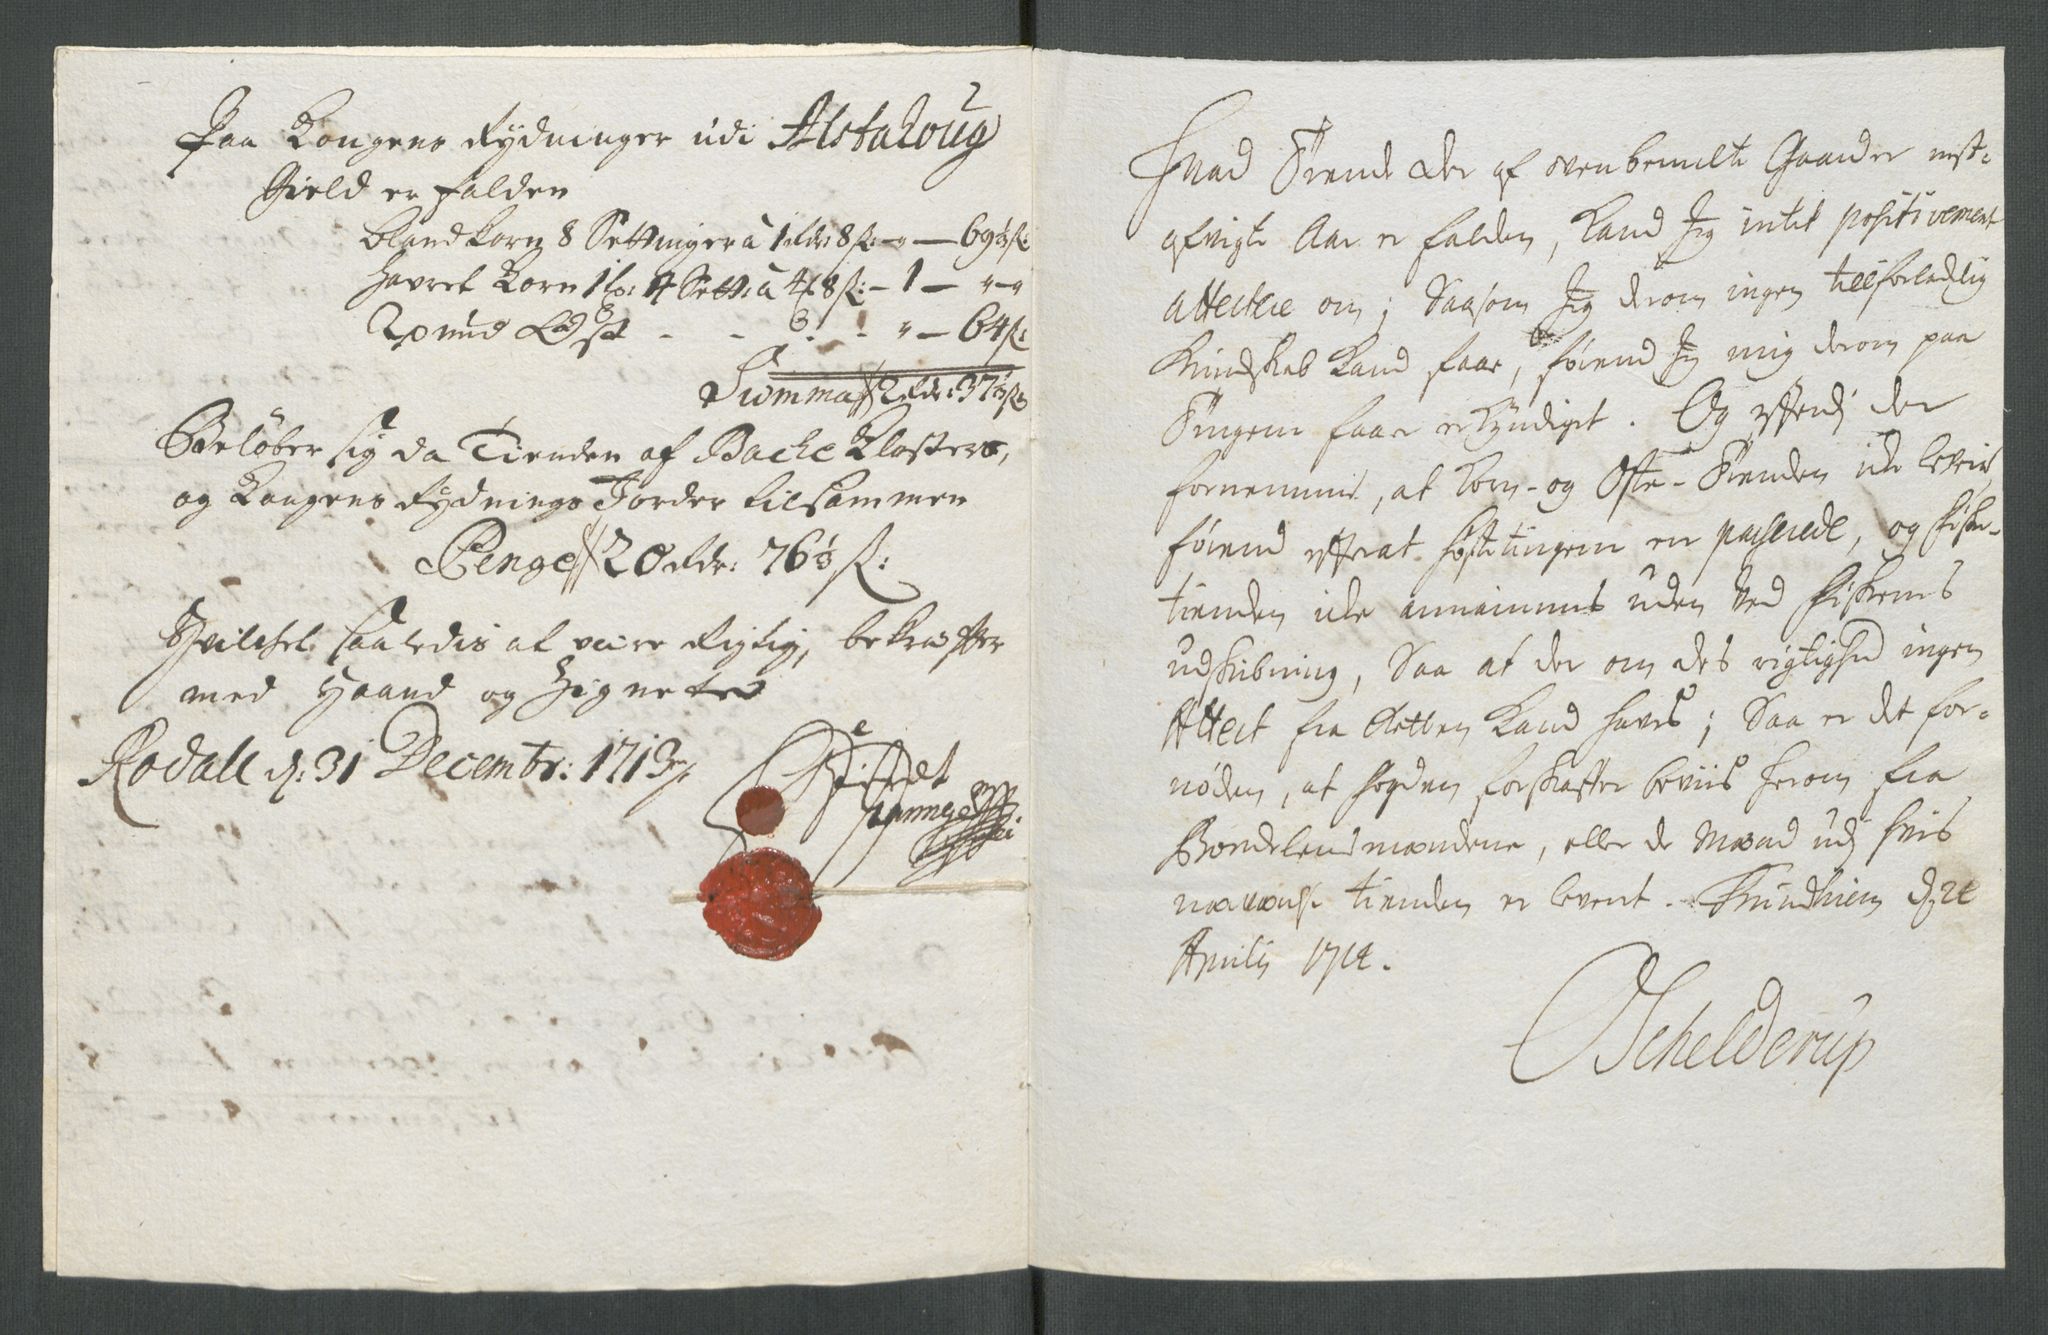 Paa Kongens Rydninger udi Alstahoug
Gield er falden
blandkorn 8 Settinger à 1 rdr: 8 s: - „ — 69⅓ s:
havrek Korn 1 lp: 4 Sett: à 4 8 s: - 1 — „ - „
2 pund Ost - - 3 - - „ — 64 s:
Summa 2 rdr: 37⅓ s
Beløber sig da Tienden af Bache Klosters,
og Kongens Rydnings Jorder tilsammen
Penge 20 rdr: 76⅓ s:
Hvilchet saaledis at være Rigtig, bekræffter
med Haand og Zignete
Rødall d: 31 Decembr: 1713

Hvad Tiende der af ovenbemelte Gaarder nest-
afvigte Aar er falden, kand Jeg intet positivement
attestere om; Saasom Jeg derom ingen tilforladelig
Kundskab kand faae, førend Jeg mig derom paa
Tingene faar erkyndiget. Og efterdj der
fornemmis, at Korn- og Oste-Tienden icke leveris
førend efterat høstetingene er passerede, og fiske-
tienden icke annammis uden ved fiskens
udskibning, Saa at der om des rigtighed ingen
Attest fra Retten kand haves; Saa er det for-
nøden, at fogden forskaffer beviis herom fra
Bondelensmændene, eller de Mænd udj hvis
nærværelse tienden er levert. Trundhiem d. 21
Aprilis 1714.
Schelderup